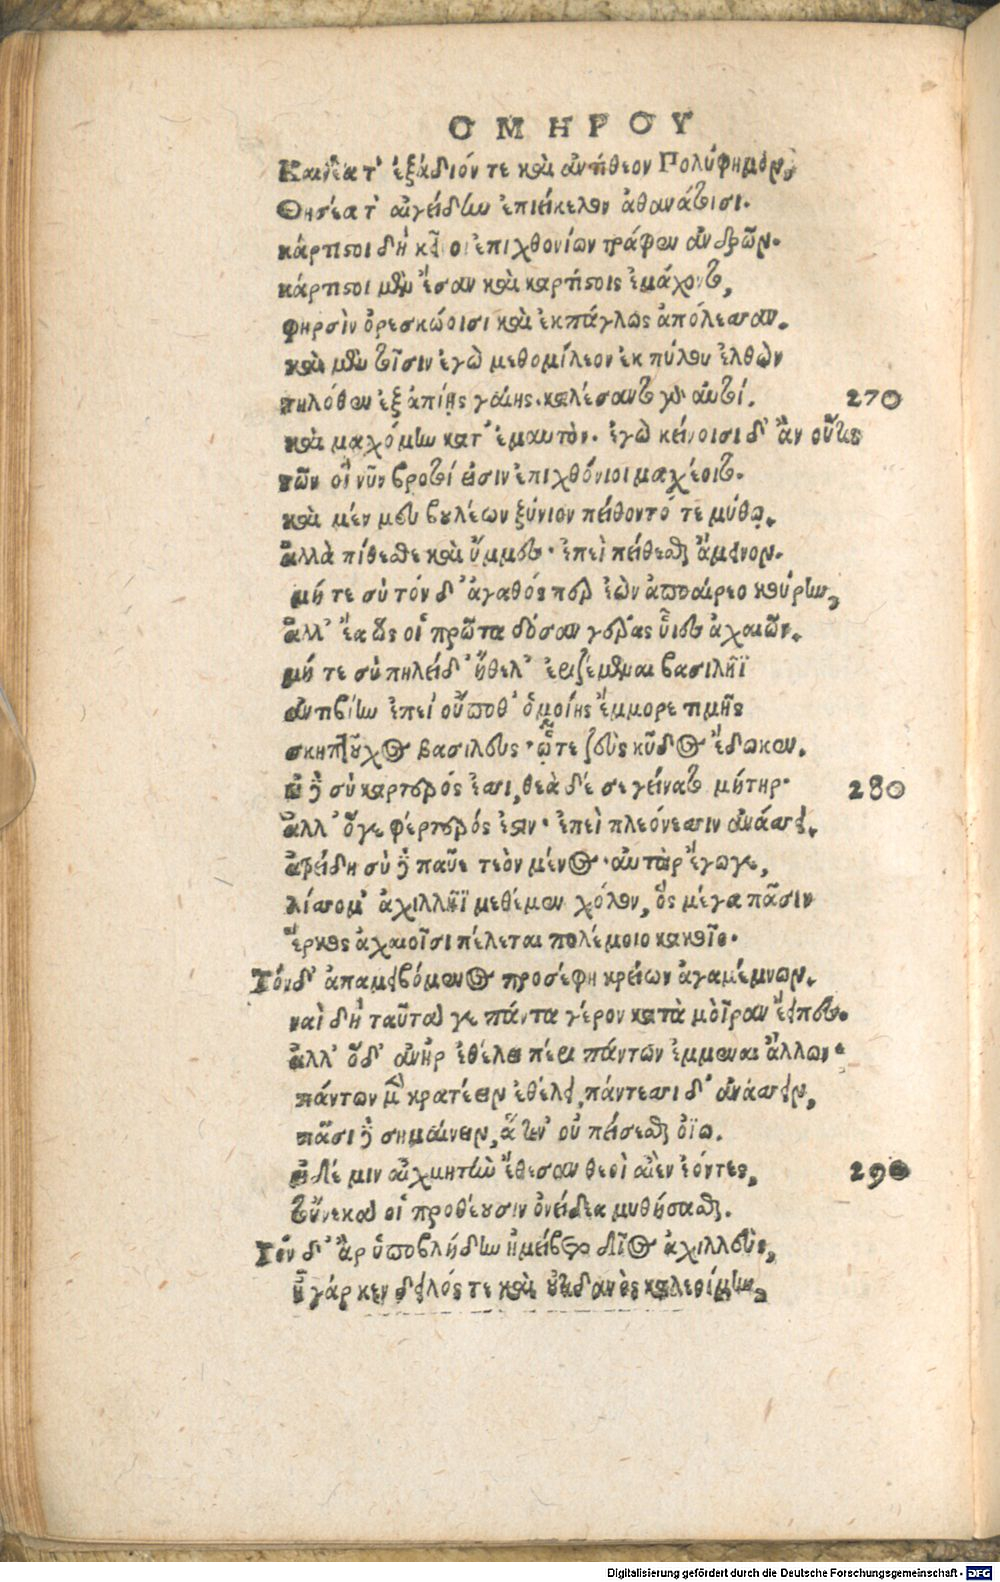 ΟΜΗΡΟΥ
Καινέα τ' ἐξάδιόν τε καὶ ἀντίθεον Πολύφημον,
Θησέα τ' αἰγείδην ἐπιείκελον ἀθανάτοισι.
κάρτιστοι δὴ κεῖνοι ἐπιχθονίων τράφεν ἀνδρῶν.
κάρτιστοι μὲν ἔσαν καὶ καρτίστοις ἐμάχοντο,
φηρσὶν ὀρεσκώοισι καὶ ἐκπάγλως ἀπόλεσσαν.
καὶ μὲν τοῖσιν ἐγὼ μεθομίλεον ἐκ πύλου ἐλθὼν
τηλόθεν ἐξ ἀπίης γαίης. καλέσαντο γὰρ αὐτοί. 270
καὶ μαχόμην κατ' ἐμαυτὸν. ἐγὼ κείνοισι δ' ἂν οὔτις
τῶν οἳ νῦν βροτοί εἰσιν ἐπιχθόνιοι μαχέοιτο.
καὶ μέν μευ βουλέων ξύνιον πείθοντό τε μύθῳ.
ἀλλὰ πίθεσθε καὶ ὔμμες. ἐπεὶ πείθεσθαι ἄμεινον.
μήτε σὺ τόνδ' ἀγαθός περ ἐὼν ἀποαίρεο κούρην,
ἀλλ' ἔα ὥς οἱ πρῶτα δόσαν γέρας ὗιες ἀχαιῶν.
μήτε σὺ πηλείδ' ἤθελ' ἐριζέμεναι βασιλῆϊ
ἀντιβίην ἐπεί οὔποθ' ὁμοίης ἔμμορε τιμῆς
σκηπτοῦχος βασιλεὺς. ᾧτε ζεὺς κῦδος ἔδωκεν.
εἰ δὲ σὺ καρτερός ἐσσι, θεὰ δέ σε γείνατο μήτηρ. 280
ἀλλ' ὅγε φέρτερός ἐστιν. ἐπεὶ πλεόνεσσιν ἀνάσσει.
ἀτρείδη σὺ δὲ παῦε τεὸν μένος. αὐτὰρ ἔγωγε,
λίσσομ' ἀχιλλῆϊ μεθέμεν χόλον, ὃς μέγα πᾶσιν
ἕρκος ἀχαιοῖσι πέλεται πολέμοιο κακοῖο.
Τόνδ' ἀπαμειβόμενος προσέφη κρείων ἀγαμέμνων.
ναὶ δὴ ταῦτα γε πάντα γέρον κατὰ μοῖραν ἔειπες.
ἀλλ' ὅδ' ἀνὴρ ἐθέλει περὶ πάντων ἔμμεναι ἄλλων.
πάντων μὲν κρατέειν ἐθέλει, πάντεσσι δ' ἀνάσσειν,
πᾶσι δὲ σημαίνειν, ἅ τιν' οὐ πείσεσθαι ὀΐω.
εἰ δέ μιν αἰχμητὴν ἔθεσαν θεοὶ αἰὲν ἐόντες, 290
τούνεκα οἱ προθέουσιν ὀνείδεα μυθήσασθαι.
Τὸν δ' ἂρ ὑποβλήδην ἠμείβετο δῖος ἀχιλλεὺς,
ἦ γάρ κεν δειλός τε καὶ οὐτιδανὸς καλεοίμην,
Digitalisierung gefördert durch die Deutsche Forschungsgemeinschaft - DFG